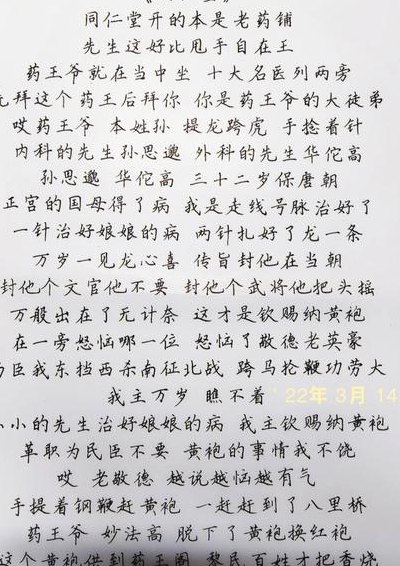 同仁堂开的本是老药铺
先生这好比甩手自在王
药王爷就在当中坐 十大名医列两旁
拜这个药王后拜你 你是药王爷的大徒弟
哎药王爷 本姓孙 提龙跨虎 手捻着针
内科的先生孙思邈 外科的先生华佗高
孙思邈 华佗高 三十二岁保唐朝
正宫的国母得了病 我是走线号脉治好了
一针治好娘娘的病 两针扎好了龙一条
万岁一见龙心喜 传旨封他在当朝
封他个文官他不要 封他个武将他把头摇
万般出在了无计奈 这才是钦赐纳黄袍
在一旁怒恼哪一位 怒恼了敬德老英豪
臣我东挡西杀南征北战 跨马抡鞭功劳大
我主万岁 瞧不着
'22年 3月 14
小的先生治好娘娘的病 我主钦赐纳黄袍
革职为民臣不要 黄袍的事情我不饶
哎 老敬德 越说越恼越有气
手提着钢鞭赶黄袍 一赶赶到了八里桥
药王爷 妙法高 脱下了黄袍换红袍
这个黄袍供到药王阁 黎民百姓才把香烧